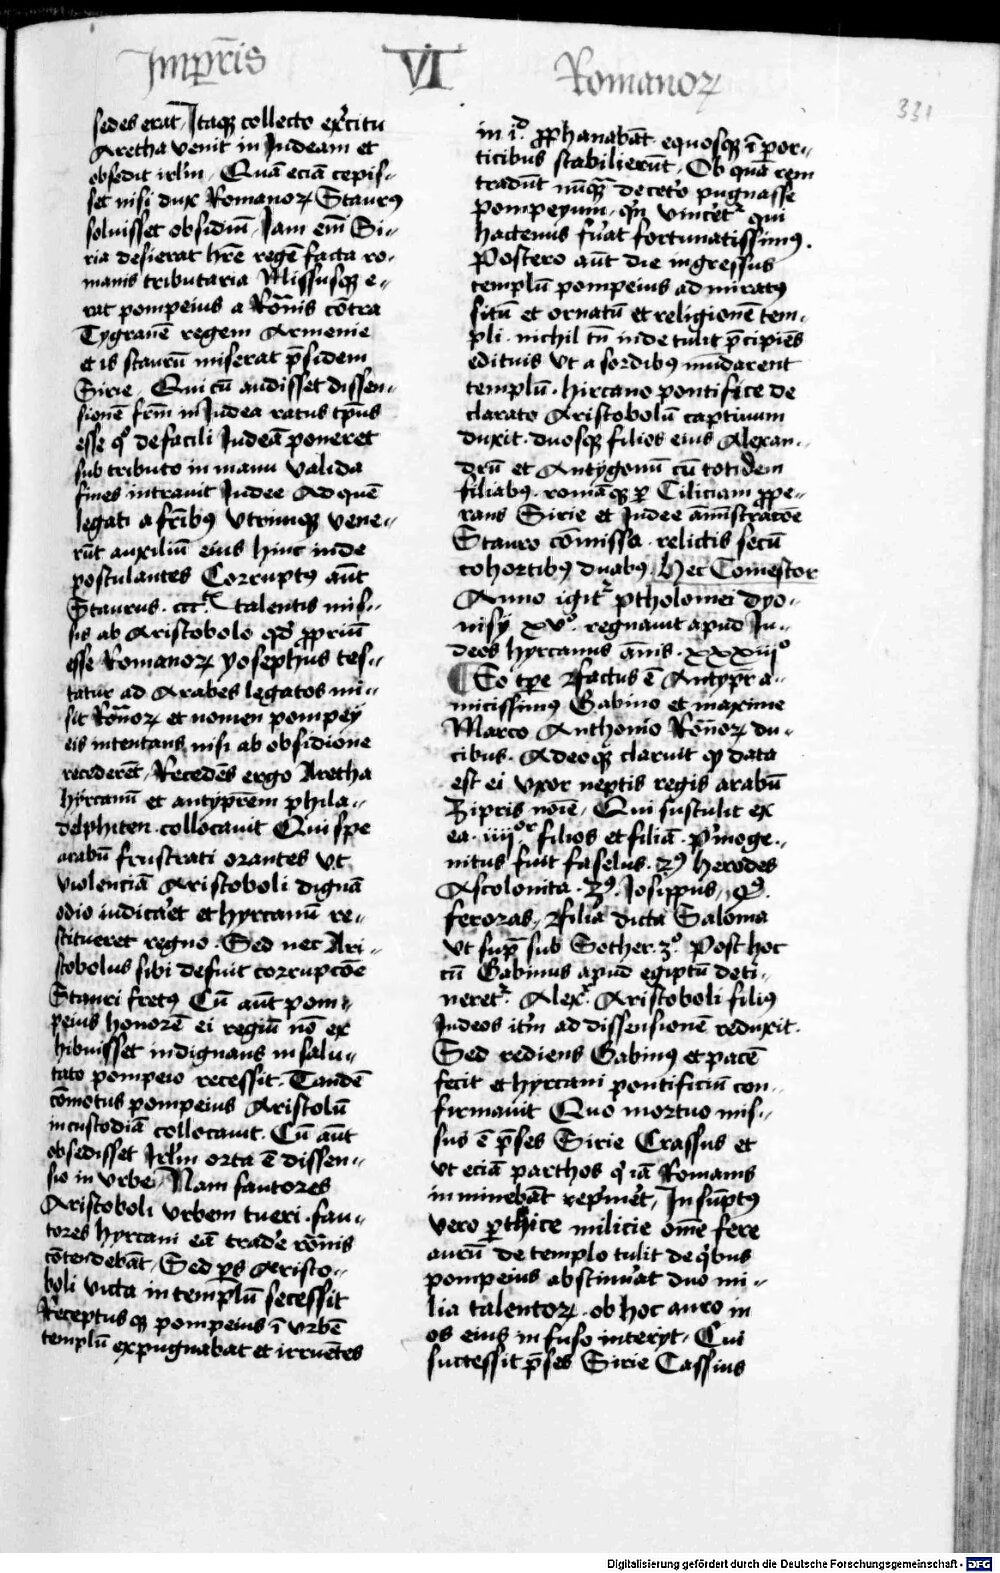 Imp̄ris VI Romanoꝝ
331
sedes erat, Itaqꝫ collecto ex̄citu
Aretha venit in Judeam et
obsedit irl̄m, Quā eciā cepis-
set nisi dux Romanoꝝ Stauꝰ
soluisset obsidiū, Jam em̄ Si-
ria desierat hr̄e regē facta ro-
manis tributaria Missusqꝫ e-
rat pompeius a Ro̅nis cōtra
Tygranē regem Armenie
et is staurū miserat p̄sidem
Sirie, Qui cū audisset dissen-
sionē fr̄m in Judea ratus tp̄us
esse qͦ de facili Judeā poneret
sub tributo in manu valida
fines intrauit Judee Ad quē
legati a fr̄ibꝰ vtrinqꝫ vene-
rūt auxiliū eius hinc inde
postulantes Corruptꝰ aūt
Staurus . cccᵗⁱˢ talentis mis-
sis ab Aristobolo qd̄ ꝓpriū
esse Romanoꝝ yosephus tes-
tatur ad Arabes legatos mi-
sit Ro̅noꝝ et nomen pompey
eis intentans nisi ab obsidione
recederēt, Recedēs ergo Aretha
hyrcanū et antyp̄rem phila-
delphiten . collocauit Qui spe
arabū frustrati orantes vt
violenciā Aristoboli dignā
odio iudicar̄et et hyrcanū re-
stitueret regno . Sed nec Ari-
stobolus sibi defuit corrupcōe
Stauri fretꝰ Cū aūt pom-
peius honorē ei regiū nō ex
hibuisset indignans insalu-
tato pompeio recessit. Tandē
cōmotus pompeius Aristolū
in custodiā collocauit. Cū aūt
obsedisset Irl̄m orta ē dissen-
sio in vrbe, Nam fautores
Aristoboli vrbem tueri . fau-
tores hyrcani eā trade̅ ro̅nis
cōtendebāt, Sed ꝑs Aristo-
boli victa in templū secessit
Receptus qꝫ pompeius ī vrbē
templū expugnabat et irruētes
in iᵈ. ꝓphanabāt equosqꝫ ī por-
ticibus stabilierūt, Ob quā rem
tradūt nūqꝫ̄ deceto̅ pugnasse
pompeyum, qn̄ vincetʳ qui
hactenus fu̅at fortunatissimꝰ.
Postero aūt die ingressus
templū pompeius admiratꝰ
sitū et ornatū et religionē tem-
pli . nichil tn̄ inde tulit p̄cipiēs
edituis vt a sordibꝰ mūdarent
templū . hircano pontifice de
clarato Aristobolū captiuum
duxit . duosqꝫ filios eius Alexan-
drū et Antygonū cū totidem
filiabꝰ . romāqꝫ ꝑ Ciliciam ꝓpe-
rans Sirie et Judee ām̄stracōe
Stauro cōmissa . relictis secū
cohortibꝰ duabꝰ, Hec Comestor
Anno igitʳ ptholomei dyo-
nisy xvͦ. regnauit apud Ju-
deos hyrcanus ānis . xxxiiijͦ
¶ Eo tp̄e Factus ē Antyp̄r a-
micissimus Gabino et maxime
Marco Anthonio Ro̅noꝝ du-
cibus . Adeoqꝫ claruit qꝫ data
est ei vxor neptis regis arabū
Zipris noīe, Qui sustulit ex
ea . iiijᵒʳ filios et filiā . p̄moge-
nitus fuit faselus . 2ꝰ herodes
Ascolonita . 3ꝰ. Josippus, 4ꝰ.
feroras, Filia dicta Saloma
vt sup̄ sub Sother . 3ͦ. Post hoc
cū Gabinus apud egiptū deti-
neretʳ. Alexʳ. Aristoboli filiꝰ
Judeos itm̄ ad dissensionē reduxit.
Sed rediens Gabinꝰ et pacē
fecit et hyrcani pontificiū con-
firmauit Quo mortuo mis-
sus ē p̄ses Sirie Crassus et
vt eciā parthos qͥ iā Romanis
in minebāt rep̄mēt, In sūptꝰ
vero ꝑthice milicie om̄e fere
aurū de templo tulit de qͥbus
pompeius abstinu̅at duo mi-
lia talentoꝝ . ob hoc auro in
os eius infuso interijt, Cui
successit p̄ses Sirie Cassius
Digitalisierung gefördert durch die Deutsche Forschungsgemeinschaft - DFG